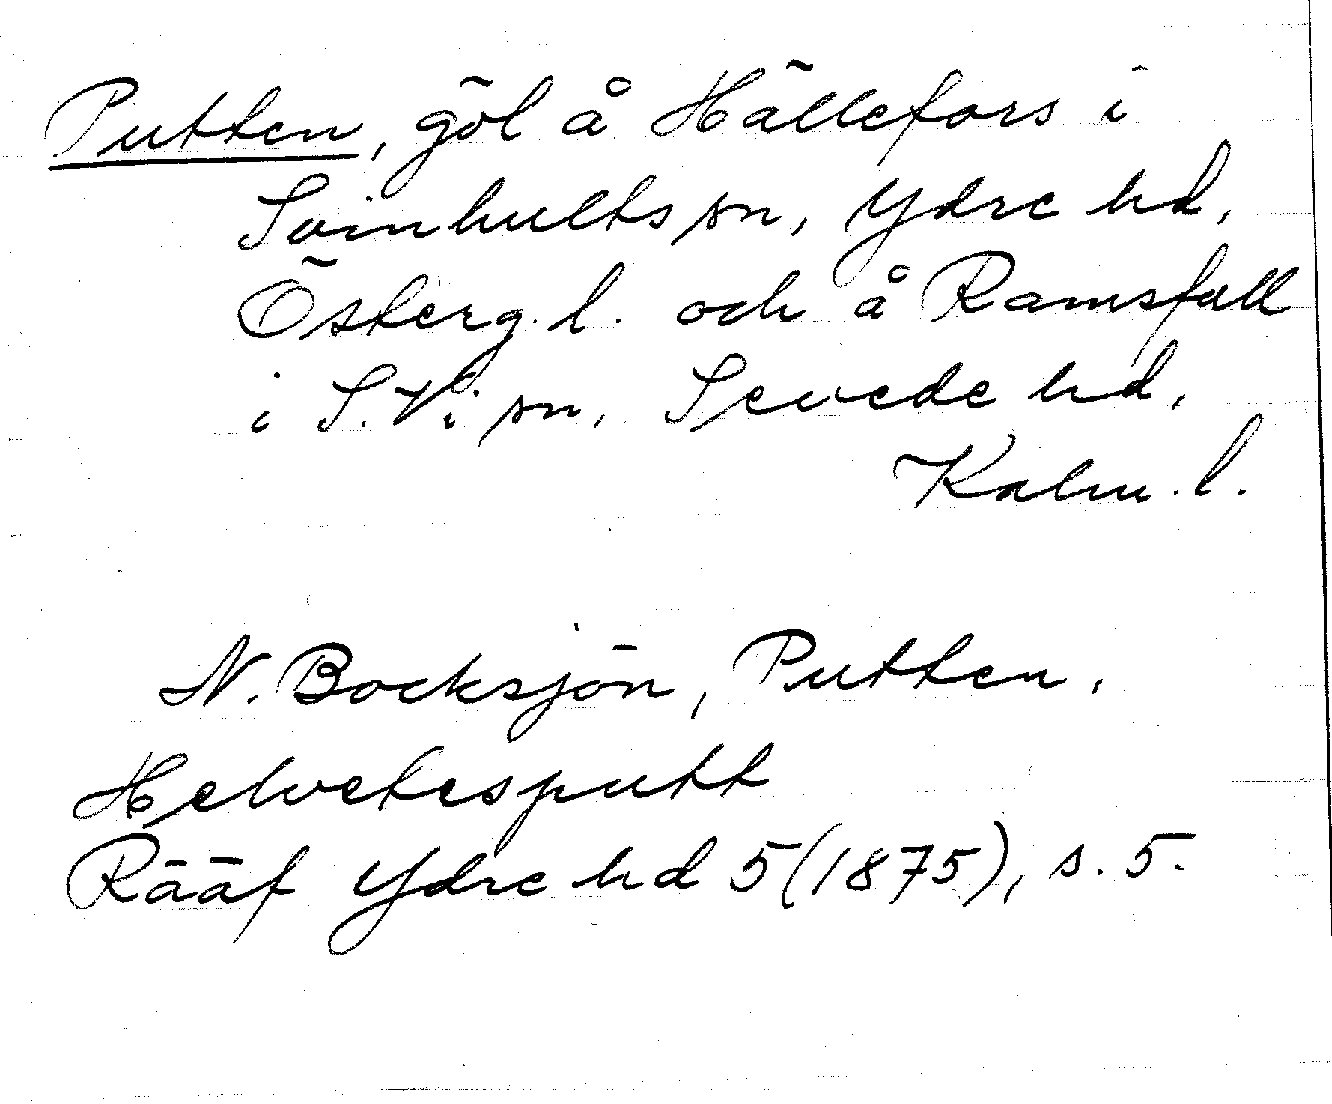 Putten, göl å Hällefors i
Svinhults sn, Ydre hd,
Österg. l. och å Ramsfall
i S. Vi sn, Sevede hd,
Kalm. l.
N. Bocksjön, Putten,
Helvetesputt
Rääf Ydre hd 5 (1875), s. 5.